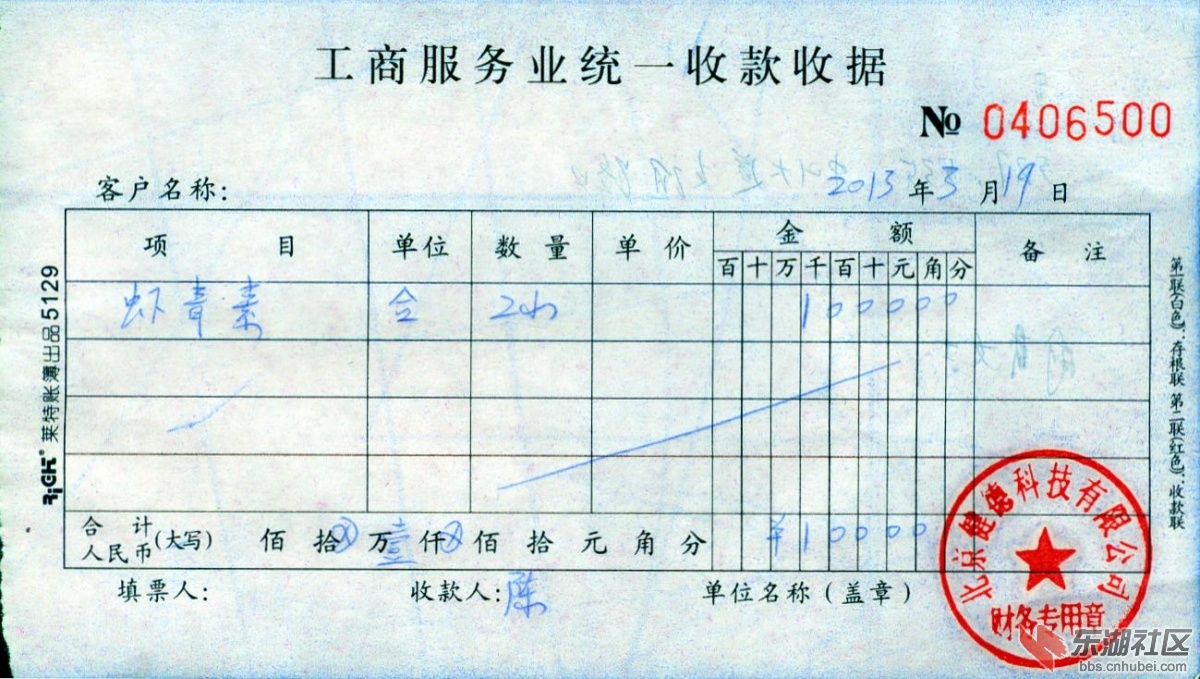 工商服务业统一收款收据
No 0406500
客户名称: 2013 年 3 月 19 日
项 目 单位 数量 单价 金 额 备 注
百 十 万 千 百 十 元 角 分
虾青素 合 100000
合 计 人民币 (大写) 佰 拾 万 壹 仟 佰 拾 元 角 分 ¥100000
填票人: 收款人: 陈 单位名称(盖章)
RiGH 莱特账簿出品 5129
第一联(白色):存根联 第二联(红色):收款联
北京健德科技有限公司
财务专用章
东湖社区
bbs.cnhubei.com